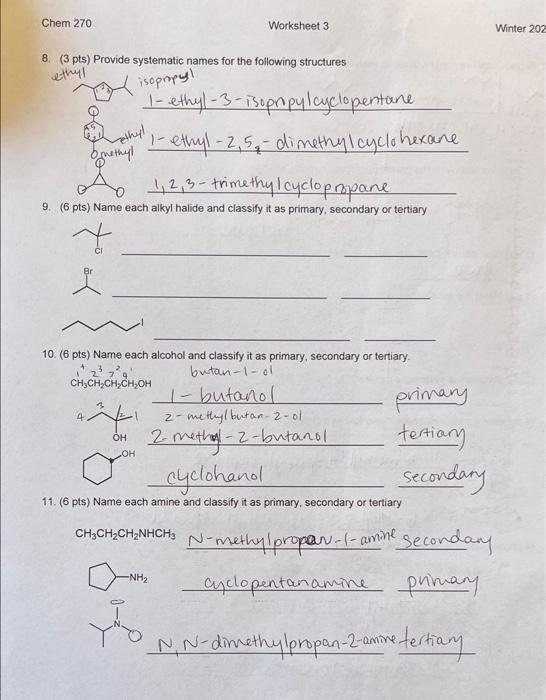 Chem 270 Worksheet 3 Winter 202
8. (3 pts) Provide systematic names for the following structures
ethyl isopropyl
1-ethyl-3-isopropylcyclopentane
ethyl 1-ethyl-2,5-dimethylcyclohexane
methyl
1,2,3-trimethylcyclopropane
9. (6 pts) Name each alkyl halide and classify it as primary, secondary or tertiary
Cl
Br
I
10. (6 pts) Name each alcohol and classify it as primary, secondary or tertiary.
butan-1-ol
CH₃CH₂CH₂CH₂OH
1-butanol primary
4 3 2 1 2-methylbutan-2-ol
OH 2-methyl-2-butanol tertiary
OH
cyclohanol secondary
11. (6 pts) Name each amine and classify it as primary, secondary or tertiary
CH₃CH₂CH₂NHCH₃ N-methylpropan-1-amine secondary
NH₂ cyclopentanamine primary
N
N,N-dimethylpropan-2-amine tertiary